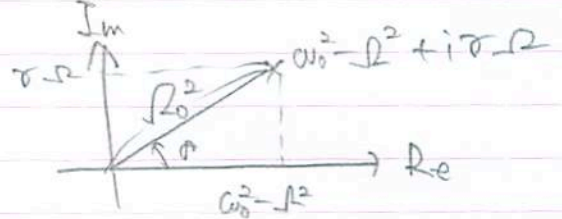 Im
γΩ
ω₀²-Ω²+iγΩ
Ω₀²
Re
ω₀²-Ω²